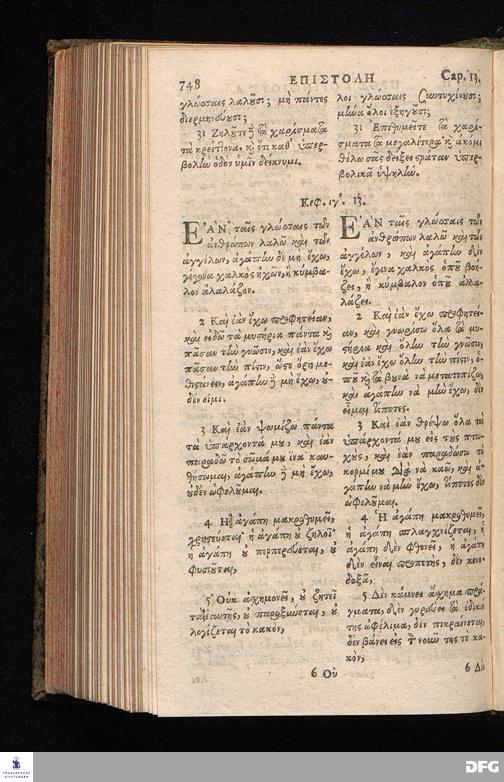 748 ΕΠΙΣΤΟΛΗ Cap. 13.
γλώσσαις λαλοῦσι; μὴ πάντες
διερμηνεύουσι;
31 Ζηλοῦτε δὲ τὰ χαρίσματα
τὰ κρείττονα. καὶ ἔτι καθ᾽ ὑπερ-
βολὴν ὁδὸν ὑμῖν δείκνυμι.
λοι γλώσσαις συντυχένουσι;
μήνα ὅλοι ἐξηγοῦσι;
31 Ἐπιθυμεῖτε τὰ χαρί-
σματα τὰ μεγαλίτερα· καὶ ἀκόμι
θέλω σας δείξει στράταν ὑπερ-
βολικὰ ὑψηλήν.
Κεφ. ιγ΄. 13.
ἘΑΝ ταῖς γλώσσαις τῶν
ἀνθρώπων λαλῶ καὶ τῶν
ἀγγέλων, ἀγάπην δὲ μὴ ἔχω,
γέγονα χαλκὸς ἠχῶν, ἢ κύμβα-
λον ἀλαλάζον.
2 Καὶ ἐὰν ἔχω προφητείαν,
καὶ εἰδῶ τὰ μυστήρια πάντα καὶ
πᾶσαν τὴν γνῶσιν, καὶ ἐὰν ἔχω
πᾶσαν τὴν πίστιν, ὥστε ὄρη με-
θιστάνειν, ἀγάπην δὲ μὴ ἔχω, οὐ-
δέν εἰμι.
3 Καὶ ἐὰν ψωμίζω πάντα
τὰ ὑπάρχοντά μου, καὶ ἐὰν
παραδῶ τὸ σῶμά μου ἵνα καυ-
θήσωμαι, ἀγάπην δὲ μὴ ἔχω,
οὐδὲν ὠφελοῦμαι.
4 Ἡ ἀγάπη μακροθυμεῖ,
χρηστεύεται· ἡ ἀγάπη οὐ ζηλοῖ·
ἡ ἀγάπη οὐ περπερεύεται, οὐ
φυσιοῦται,
5 Οὐκ ἀσχημονεῖ, οὐ ζητεῖ
τὰ ἑαυτῆς, οὐ παροξύνεται, οὐ
λογίζεται τὸ κακόν,
6 Οὐ
ἘΑΝ ταῖς γλώσσαις τῶν
ἀνθρώπων λαλῶ καὶ τῶν
ἀγγέλων, καὶ ἀγάπην δὲν
ἔχω, ἔγινα χαλκὸς ὁποῦ βοη-
ζει, ἢ κύμβαλον ὁποῦ ἀλα-
λάζει.
2 Καὶ ἐὰν ἔχω προφητεί-
αν, καὶ γνωρίσω ὅλα τὰ μυ-
στήρια καὶ ὅλην τὴν γνῶσιν,
καὶ ἐὰν ἔχω ὅλην τὴν πίστιν, ὁ-
ποῦ καὶ τὰ βουνὰ νὰ μετατοπίζω,
καὶ ἀγάπην νὰ μὴν ἔχω, δὲν
εἶμαι τίποτες.
3 Καὶ ἐὰν θρέψω ὅλα τὰ
ὑπάρχοντά μου εἰς τοὺς πτω-
χοὺς, καὶ ἐὰν παραδώσω τὸ
κορμί μου διὰ νὰ καῶ, καὶ ἀ-
γάπην νὰ μὴν ἔχω, τίποτες δὲν
ὠφελοῦμαι.
4 Ἡ ἀγάπη μακροθυμεῖ,
ἡ ἀγάπη σπλαγχνίζεται, ἡ
ἀγάπη δὲν φθονεῖ, ἡ ἀγάπη
δὲν εἶναι προπετὴς, δὲν κενο-
δοξᾷ,
5 Δὲν κάμνει ἄσχημα πρά-
γματα, δὲν γυρεύει τὰ ἐδικά
της ὠφέλιμα, δὲν πικραίνεται,
δὲν βάνει εἰς τὸν νοῦν της τὸ κα-
κόν,
6 Δὲν
DFG